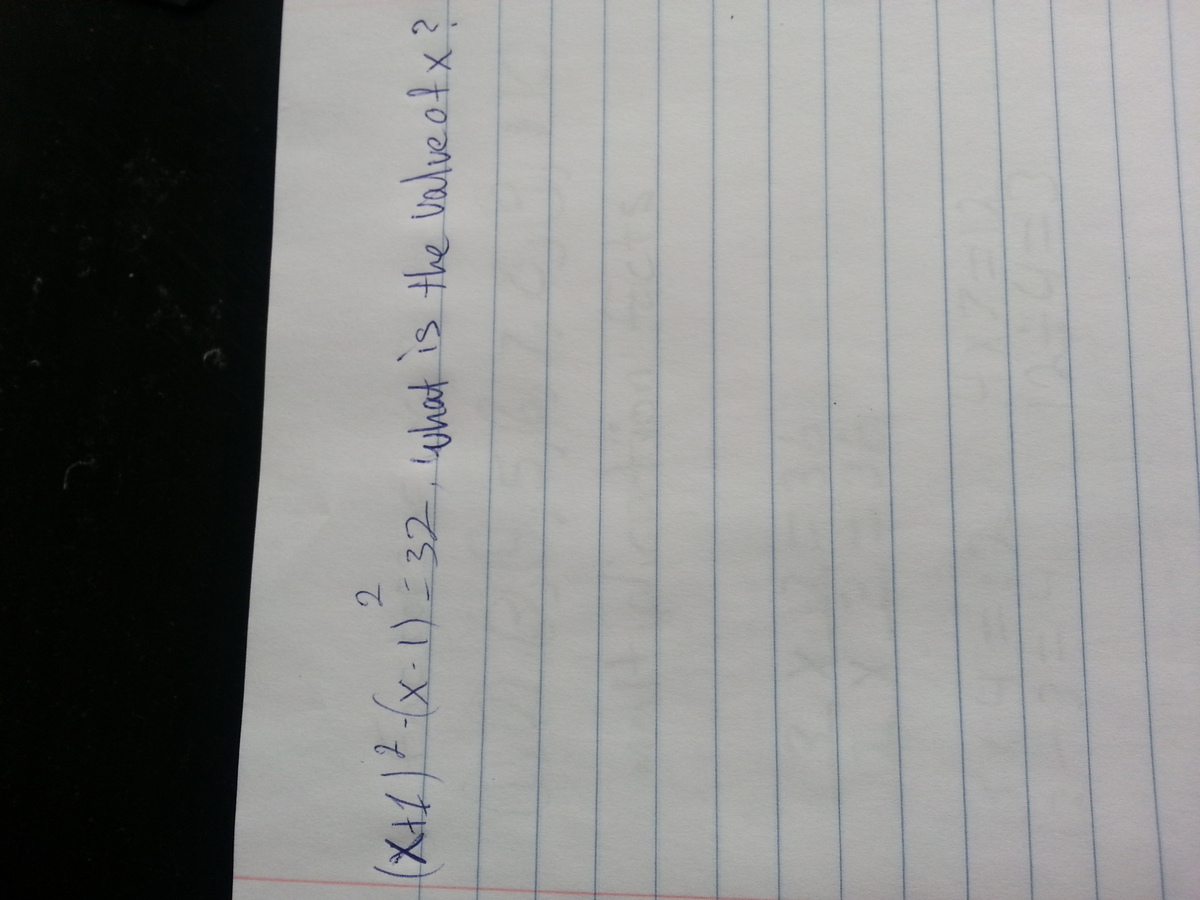 (x+1)² - (x-1)² = 32, what is the value of x?